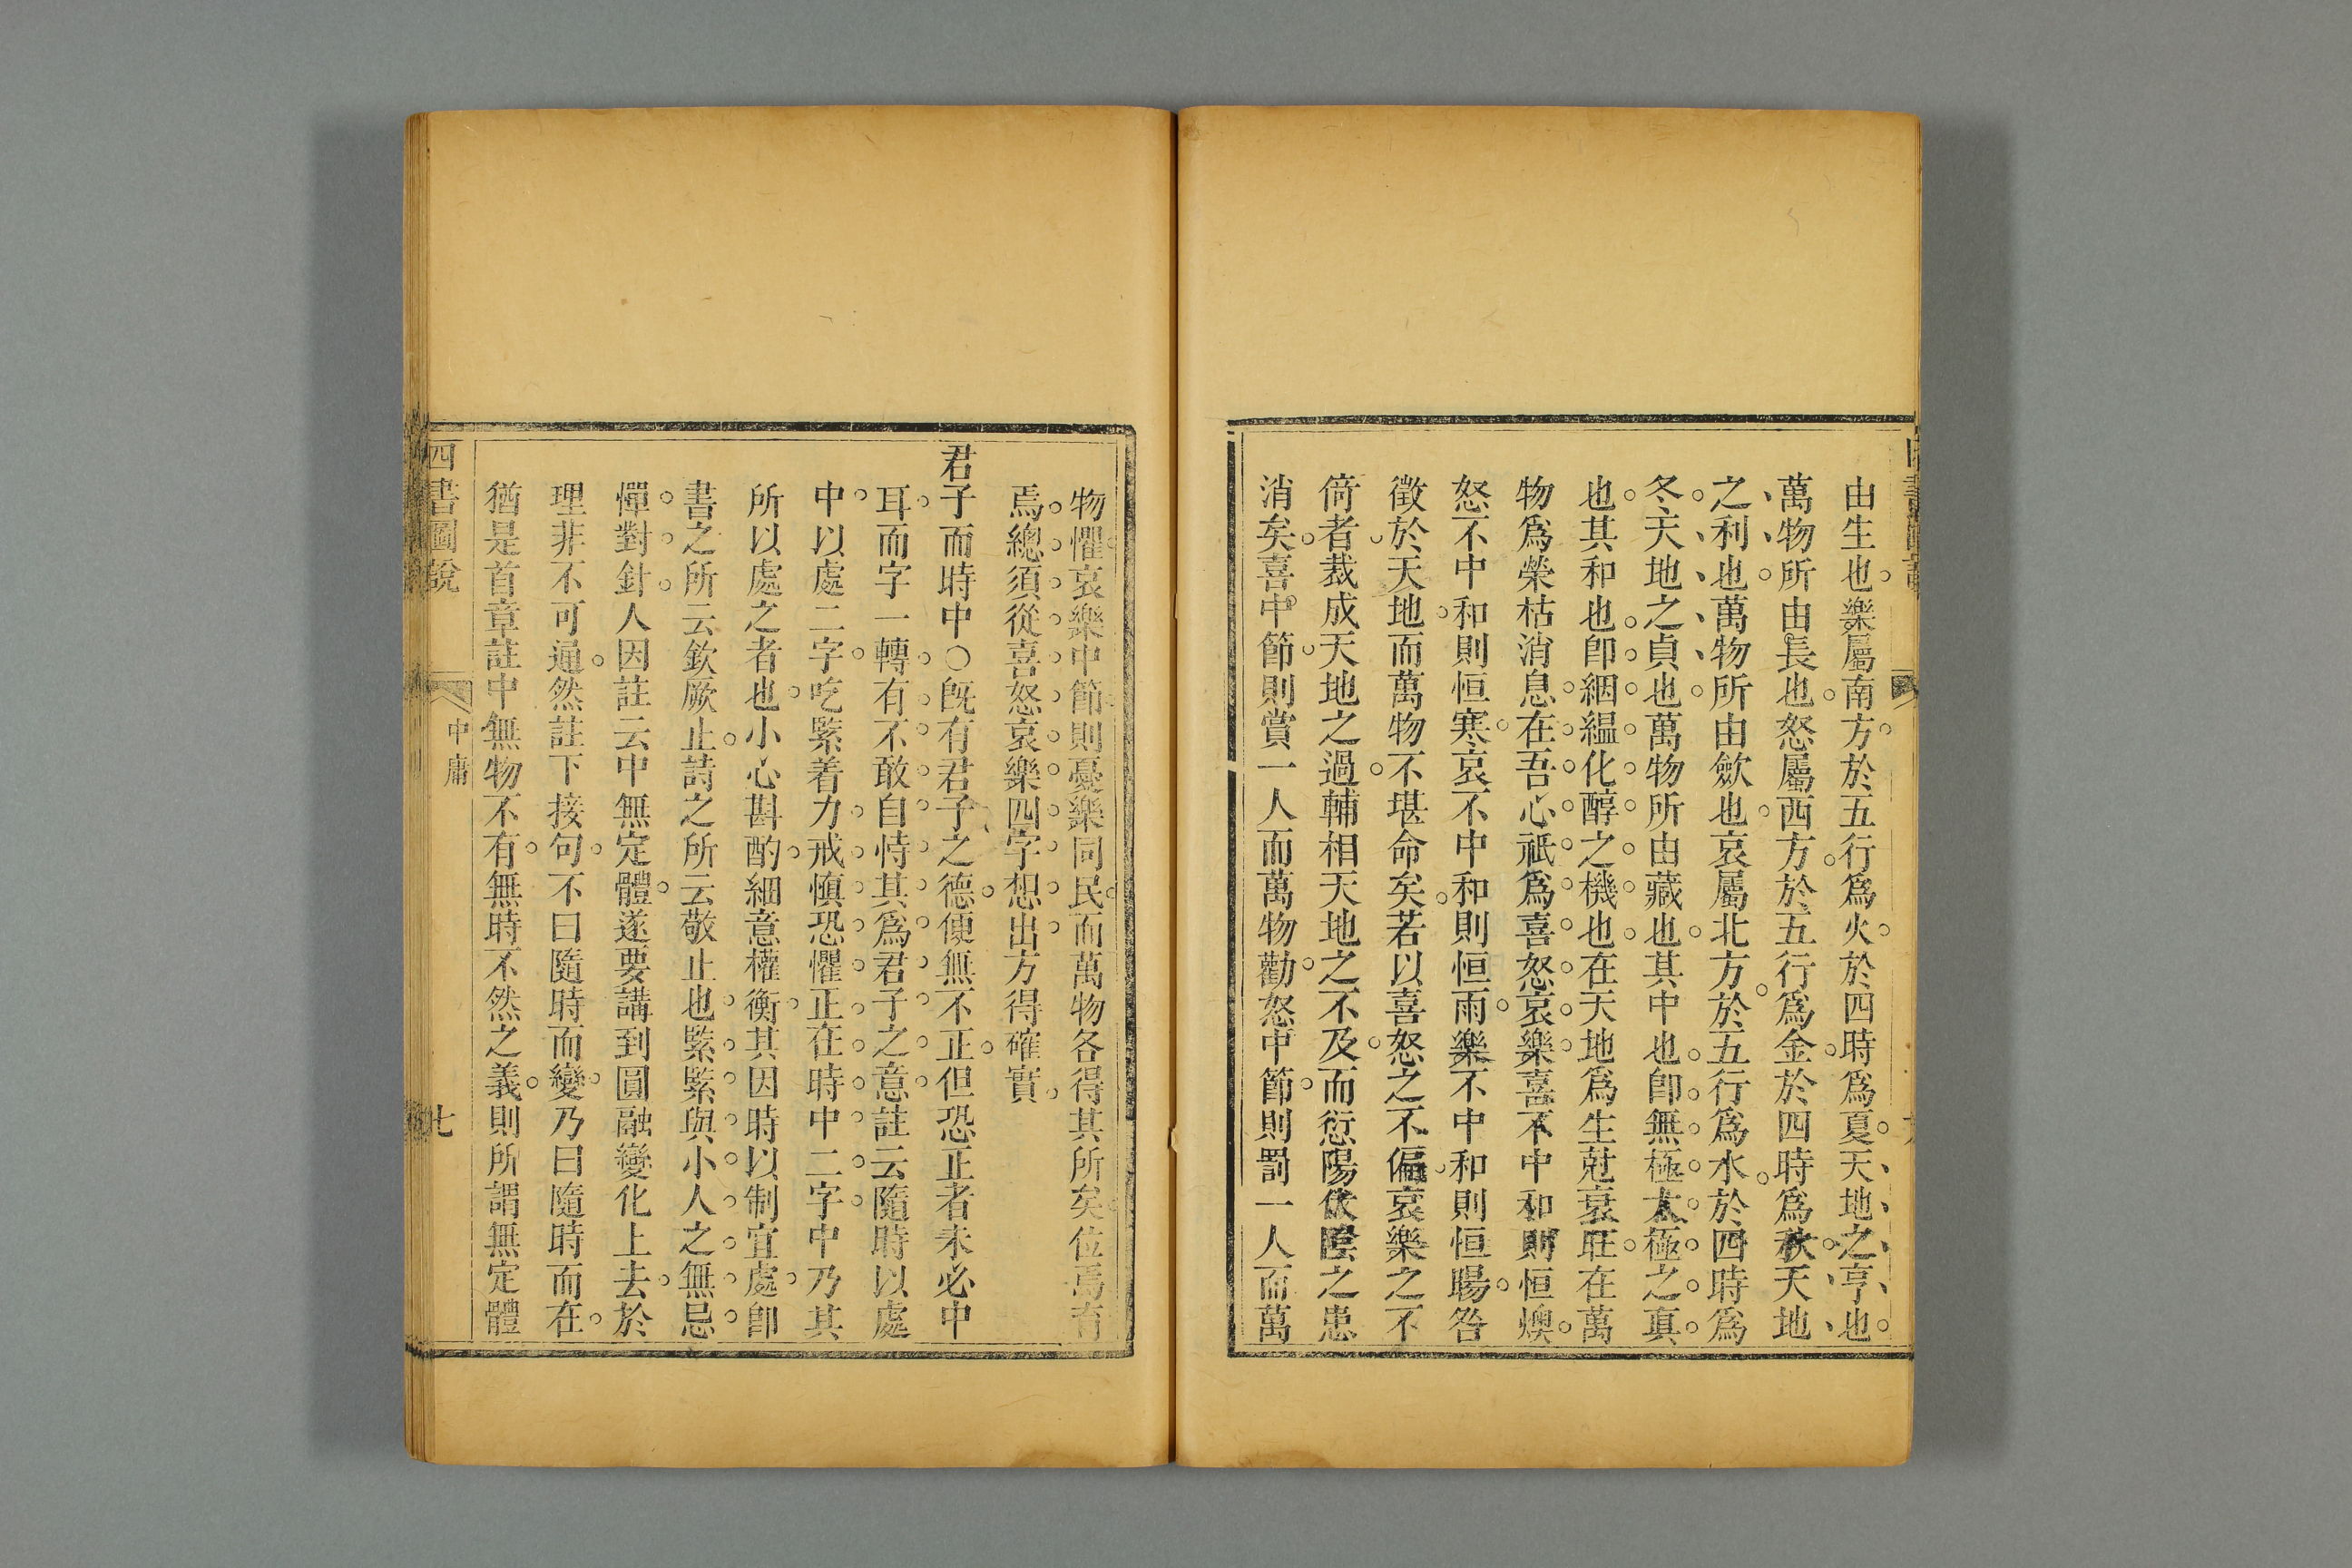 由生也樂屬南方於五行爲火於四時爲夏天地之亨也
萬物所由長也怒屬西方於五行爲金於四時爲秋天地
之利也萬物所由歛也哀屬北方於五行爲水於四時爲
冬天地之貞也萬物所由藏也其中也卽無極太極之真
也其和也卽絪縕化醇之機也在天地爲生尅衰旺在萬
物爲榮枯消息在吾心祇爲喜怒哀樂喜不中和則恒燠
怒不中和則恒寒哀不中和則恒雨樂不中和則恒暘咎
徵於天地而萬物不堪命矣若以喜怒之不偏哀樂之不
倚者裁成天地之過輔相天地之不及而愆陽伏陰之患
消矣喜中節則賞一人而萬物勸怒中節則罰一人而萬
物懼哀樂中節則憂樂同民而萬物各得其所矣位焉育
焉總須從喜怒哀樂四字想出方得確實
君子而時中○旣有君子之德便無不正但恐正者未必中
耳而字一轉有不敢自恃其爲君子之意註云隨時以處
中以處二字吃緊着力戒慎恐懼正在時中二字中乃其
所以處之者也小心斟酌細意權衡其因時以制宜處卽
書之所云欽厥止詩之所云敬止也緊緊與小人之無忌
憚對針人因註云中無定體遂要講到圓融變化上去於
理非不可通然註下接句不曰隨時而變乃曰隨時而在
猶是首章註中無物不有無時不然之義則所謂無定體
四書圖說
中庸
七